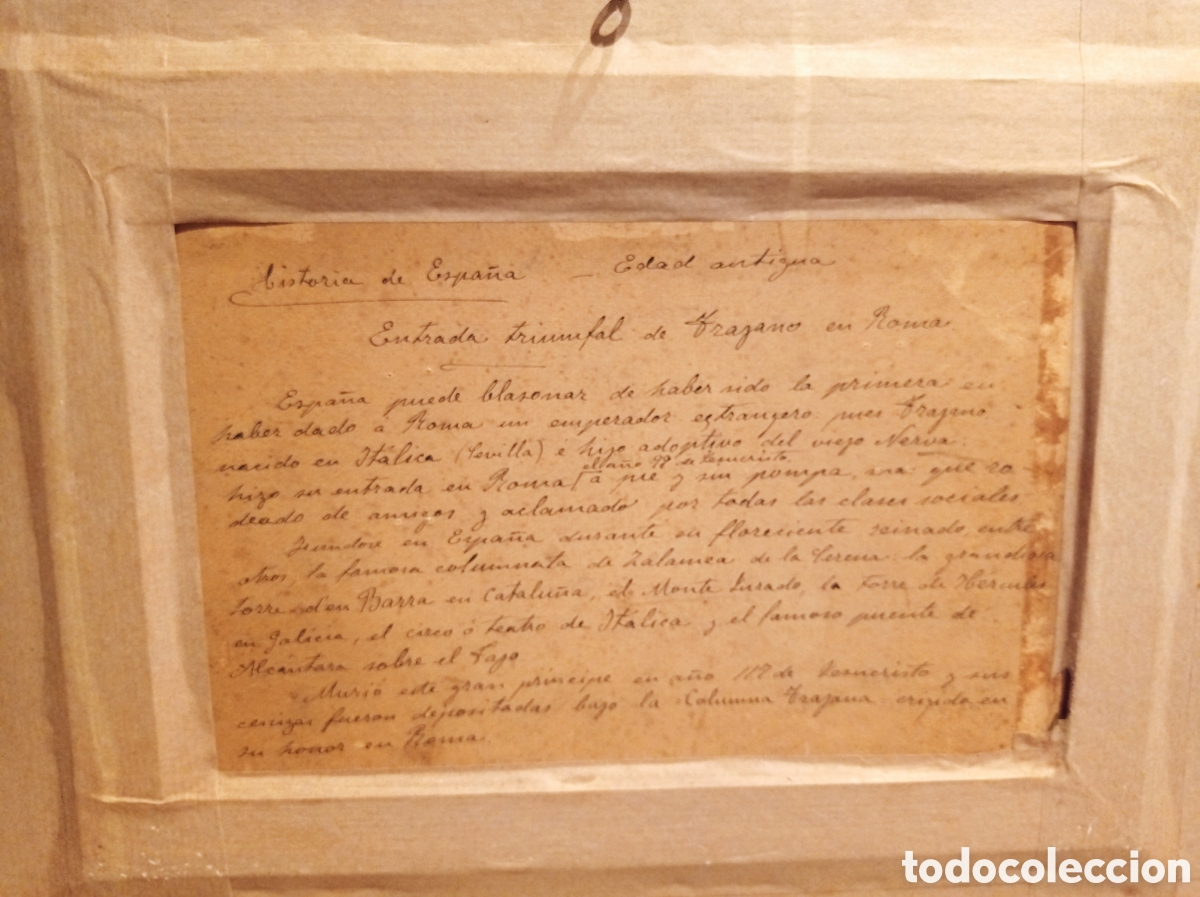 historia de España — Edad antigua
Entrada triumfal de Trajano en Roma
España puede blasonar de haber sido la primera en
haber dado á Roma un emperador extrangero pues Trajano
nacido en Itálica (Sevilla) é hijo adoptivo del viejo Nerva.
el año 98 de Jesucristo
hizo su entrada en Roma á pie y sin pompa, que ro
deado de amigos y aclamado por todas las clases sociales
en España durante su floreciente reinado, entre
otros, la famosa columnata de Zalamea de la Serena: la grandiosa
torre d'en Barra en Cataluña, el Monte Furado la torre de Hércules
en Galicia, el circo ó teatro de Itálica y el famoso puente de
Alcántara sobre el Tajo
Murió este gran príncipe en año 117 de Jesucristo y sus
cenizas fueron depositadas bajo la Columna Trajana erigida en
su honor en Roma.
todocoleccion